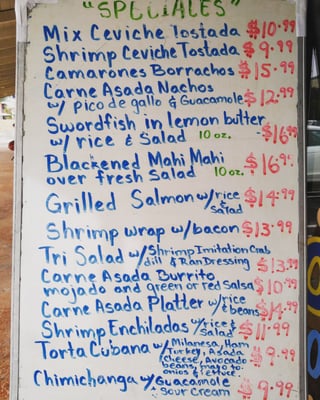 "SPECIALES"
Mix Ceviche Tostada $10.99
Shrimp Ceviche Tostada $9.99
Camarones Borrachos $15.99
Carne Asada Nachos
w/ pico de gallo & Guacamole $12.99
Swordfish in lemon butter
w/ rice & Salad 10 oz. $16.99
Blackened Mahi Mahi
over fresh Salad 10 oz. $16.
Grilled Salmon w/ rice & salad $14.99
Shrimp wrap w/ bacon $13.99
Tri Salad w/ Shrimp Imitation Crab
dill & Ran Dressing $13.
Carne Asada Burrito
mojado and green or red Salsa $10.99
Carne Asada Platter w/ rice & beans $14.99
Shrimp Enchiladas w/ rice & Salad $11.99
Torta Cubana w/ Milanesa, Ham
Turkey, Asada
Cheese, Avocado
beans, mayo to.
onios & lettuce $9.99
Chimichanga w/ Guacamole
& Sour Cream $9.99